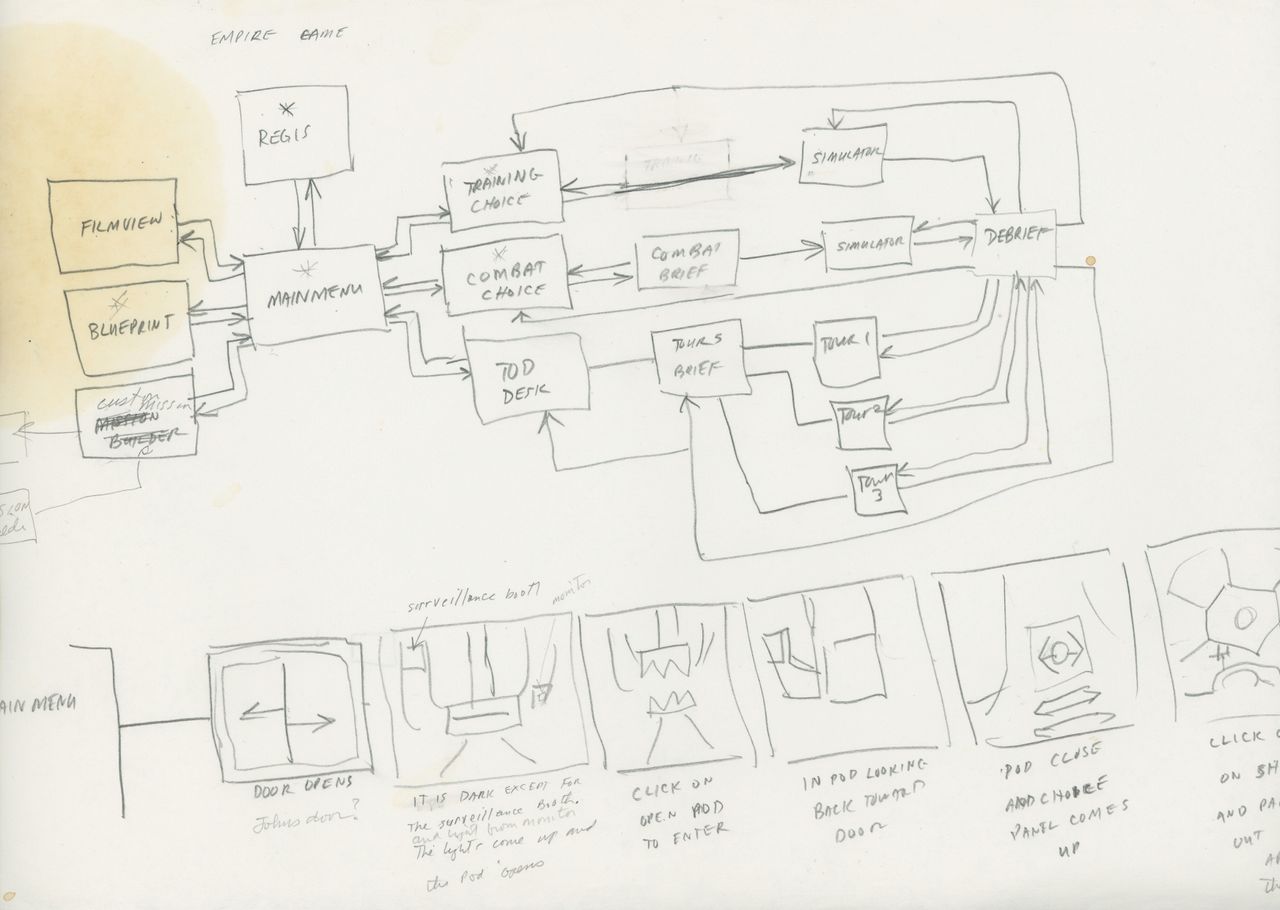 EMPIRE GAME
REGIS
FILMVIEW
BLUEPRINT
custom
mission
MISSION
BUILDER
MAIN MENU
TRAINING
CHOICE
TRAINING
SIMULATOR
COMBAT
CHOICE
COMBAT
BRIEF
SIMULATOR
DEBRIEF
TOD
DESK
TOURS
BRIEF
TOUR 1
TOUR 2
TOUR
3
surveillance booth
monitor
AIN MENU
DOOR OPENS
Johns door?
IT IS DARK EXCEPT FOR
The surveillance Booth.
and light from monitor
The lights come up and
the pod opens
CLICK ON
OPEN POD
TO ENTER
IN POD LOOKING
BACK TOWARD
DOOR
POD CLOSE
AND CHOICE
PANEL COMES
UP
CLICK
ON SH
AND PA
OUT